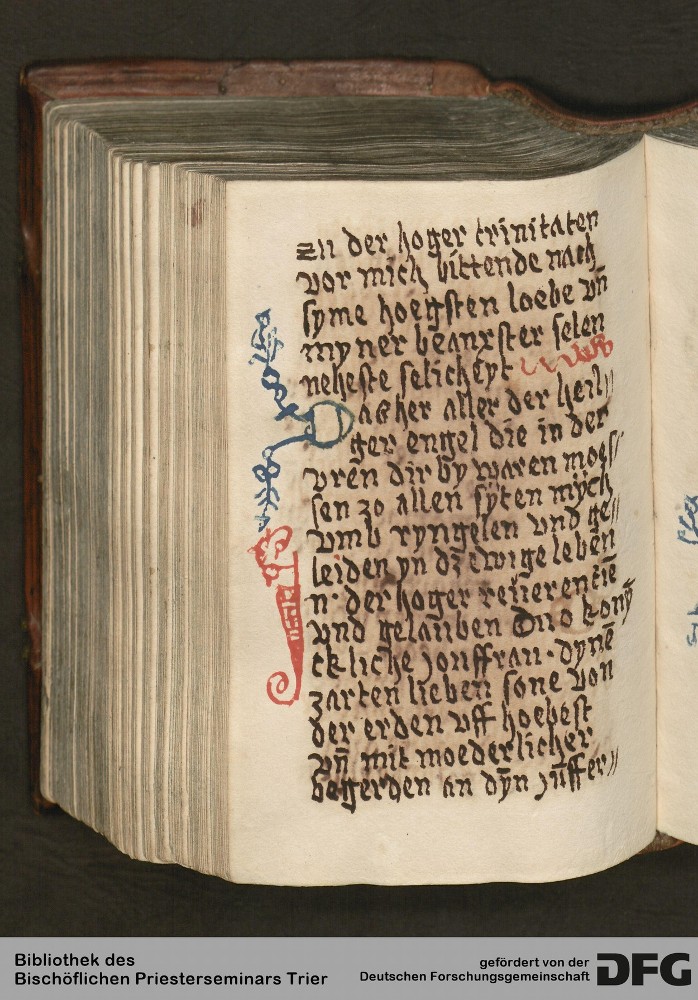 zu der hoger trinitaten
vor mich bittende nach
syme hoegsten loebe vn̄
myner beanxster selen
neheste selicheyt
Daßher aller der heil//
ger engel die in der
vren dir by waren moes//
sen zo allen sÿten mÿch
vmb ryngelen vnd ge//
leiden yn dz ewige lebēn
In der hoger reuerentiē
vnd gelauben Duo konȳ
cklliche jonffrau · dynē
zarten lieben sone von
der erden vff hoebest
vn̄ mit moederlicher
begerden an dȳn juffer//
Bibliothek des
Bischöflichen Priesterseminars Trier
gefördert von der
Deutschen Forschungsgemeinschaft
DFG